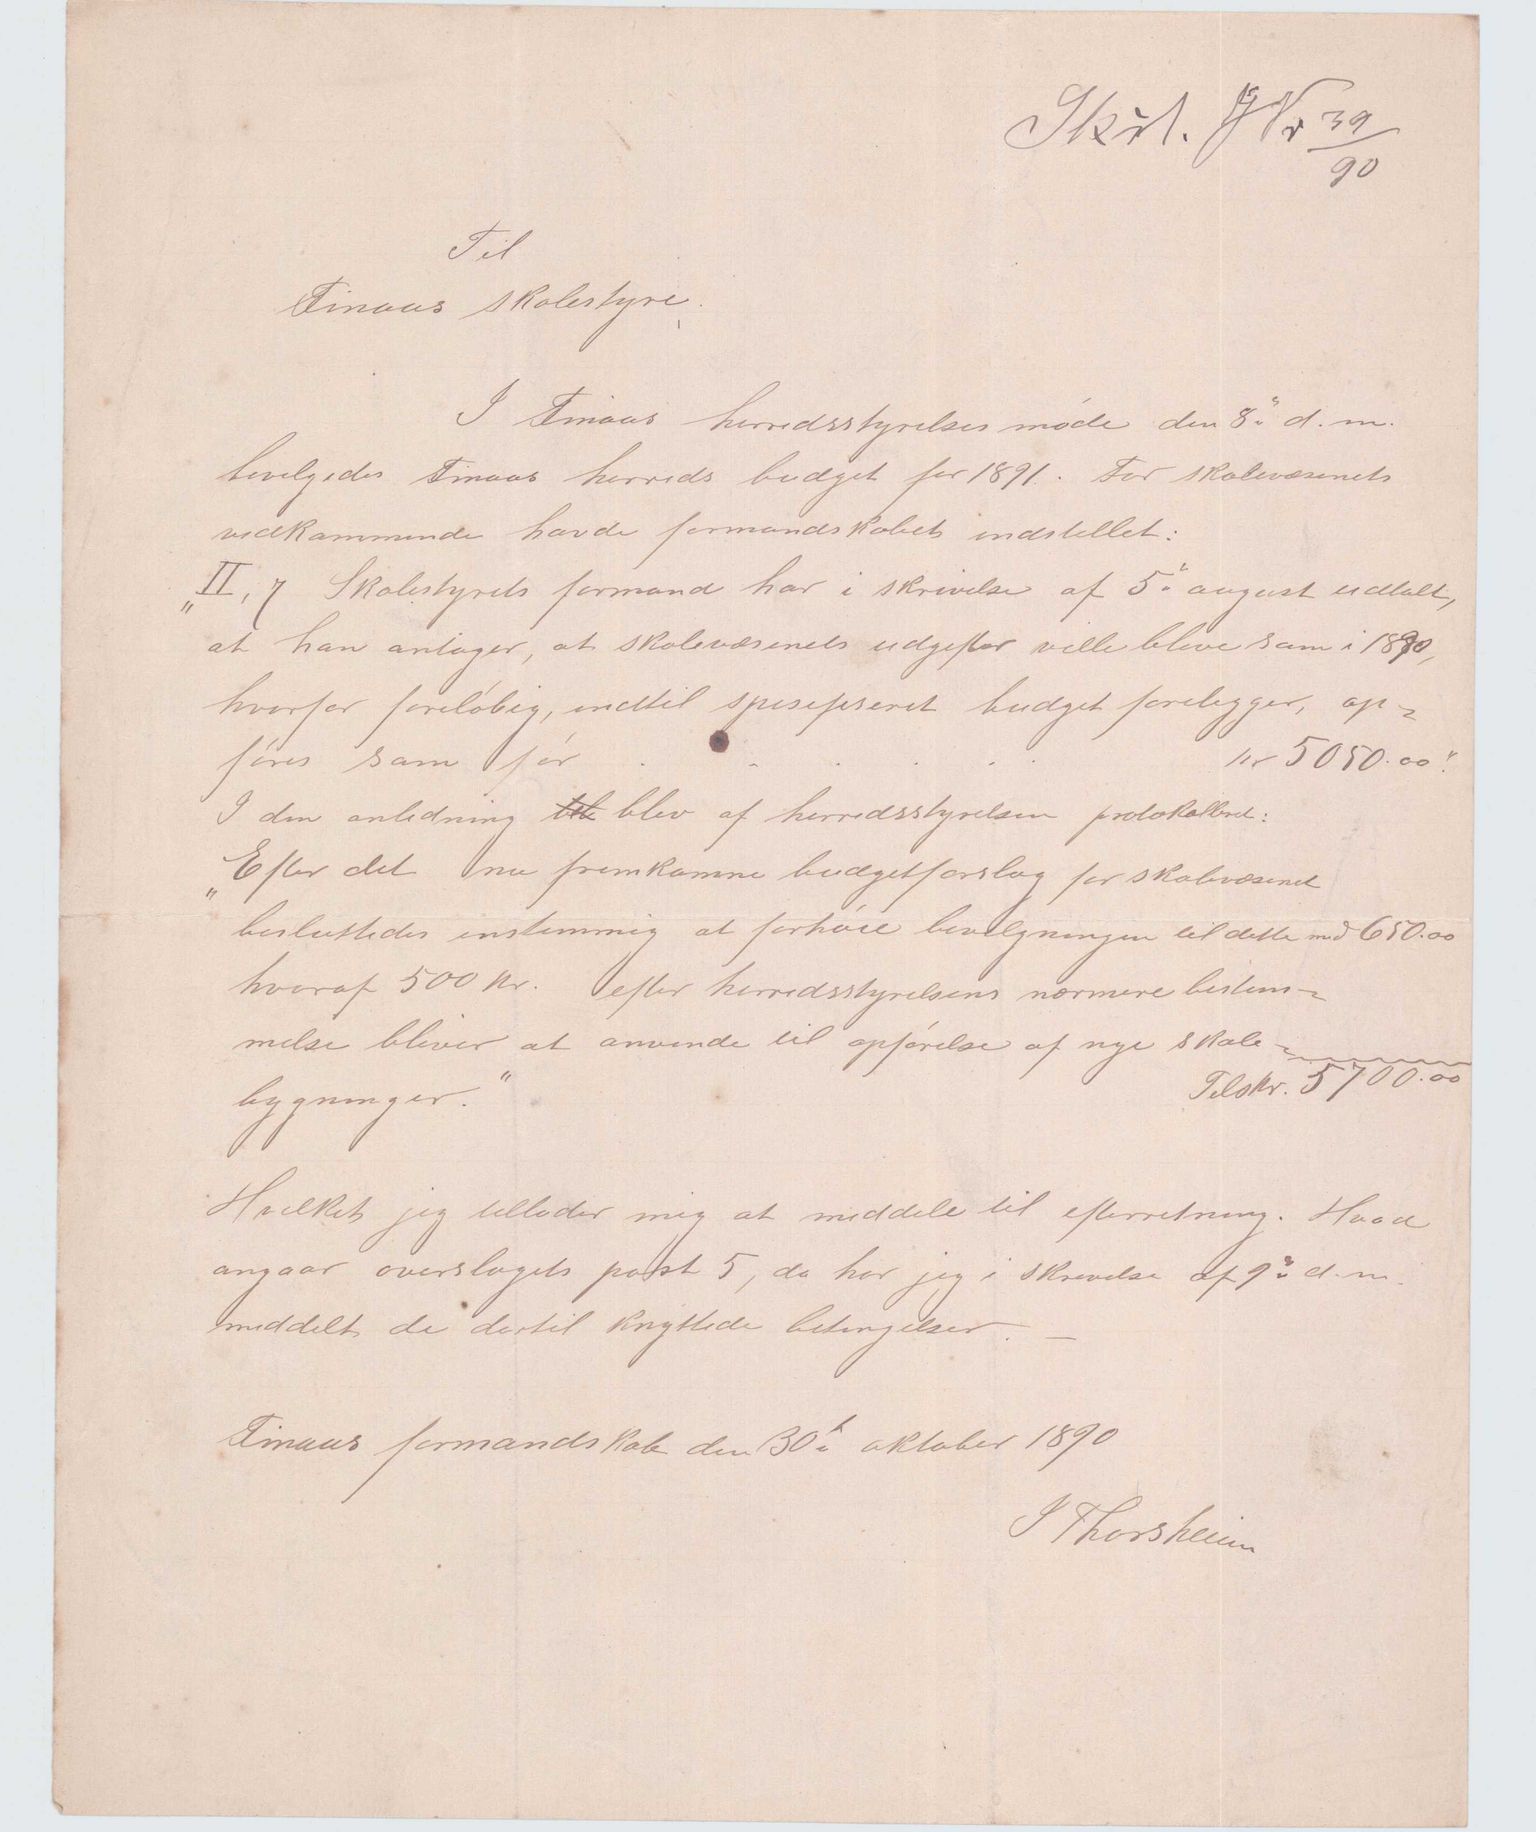 Skst. JNr 39/90
Til
Finaas skolestyre.
I Finaas herredsstyrelses møde den 8de d. m.
bevilgedes Finaas herreds budget for 1891. For skolevæsenets
vedkommende havde formandskabet indstillet:
"II, 7 Skolestyrets formand har i skrivelse af 5te august udtalt,
at han antager, at skolevæsenets udgifter ville blive som i 1890,
hvorfor foreløbig, indtil spesifiseret budget foreligger, op-
føres som før . . . . . . kr 5050.00".
I den anledning blev af herredsstyrelsen protokolleret:
"Efter det nu fremkomne budgetforslag for skolevæsenet
besluttedes enstemmig at forhøie bevilgningen til dette med 650.00
hvoraf 500 kr. efter herredsstyrelsens nærmere bestem-
melse bliver at anvende til opførelse af nye skole-
bygninger." Tils kr. 5700.00
Hvilket jeg tillader mig at meddele til efterretning. Hvad
angaar overslagets post 5, da har jeg i skrivelse af 9de d. m.
meddelt de dertil knyttede betingelser. —
Finaas formandskab den 30te oktober 1890
J Thorsheim